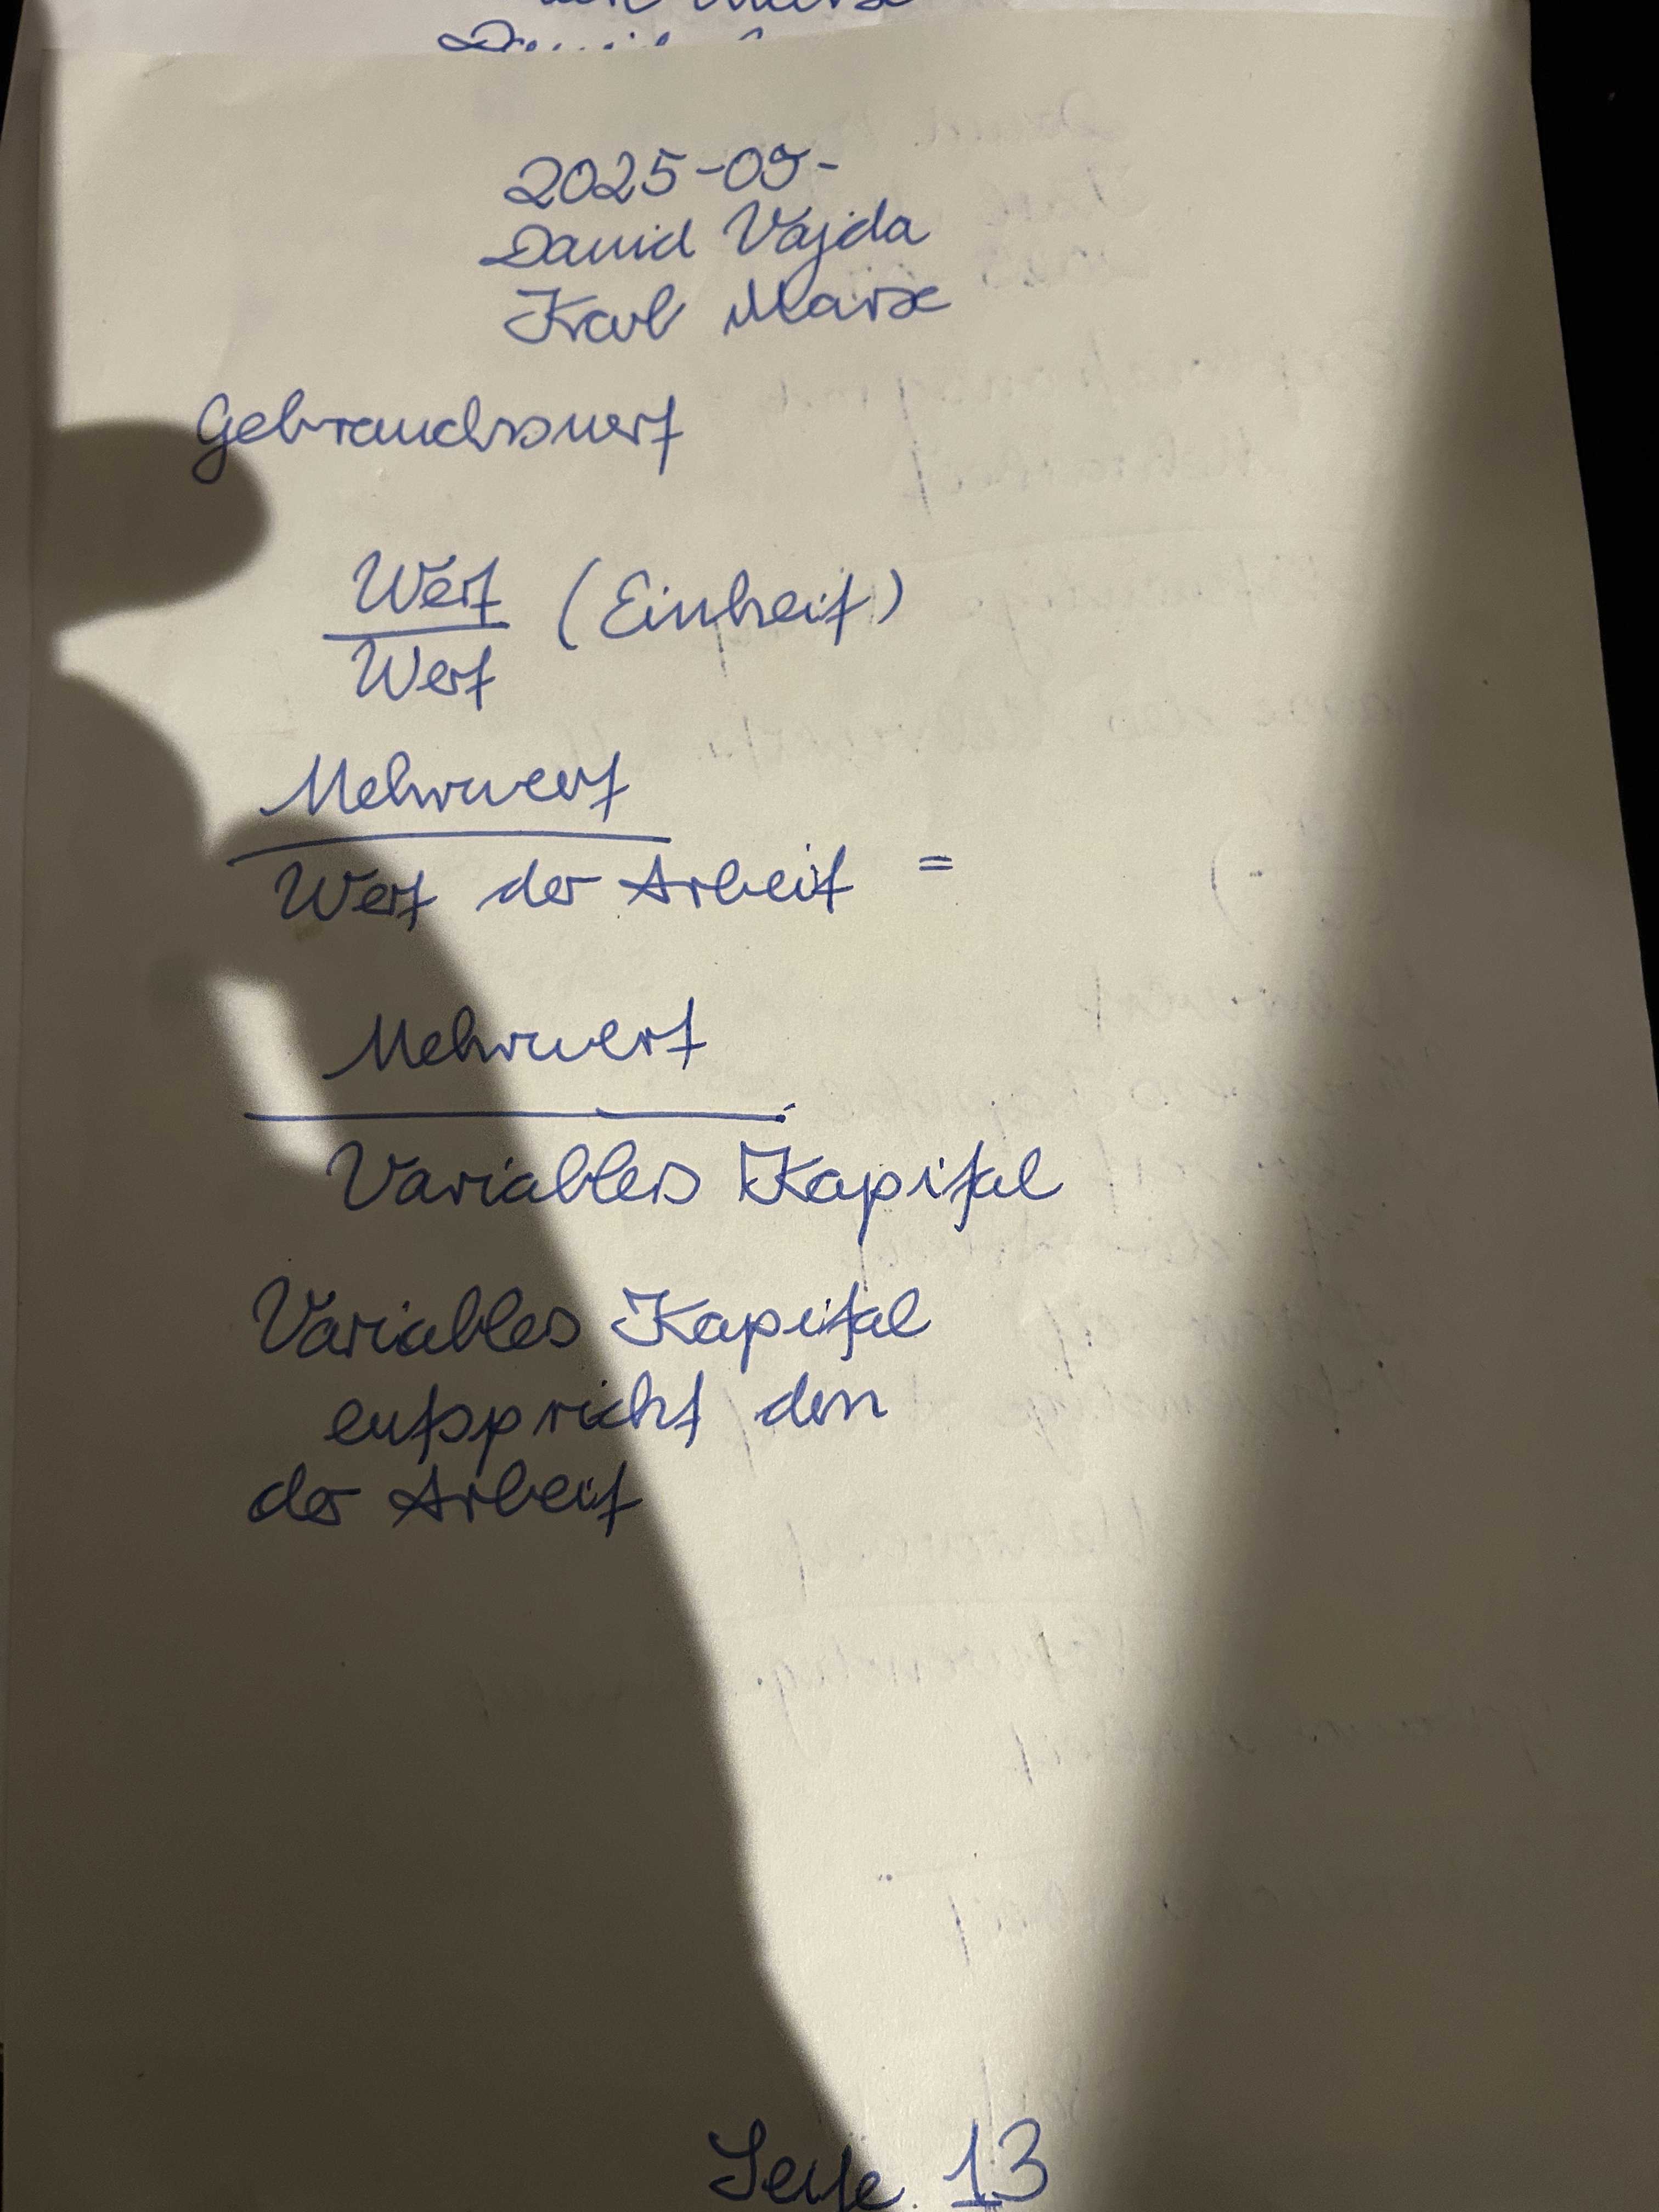 2025-09-
David Vajda
Karl Marx
Gebrauchswert
Wert (Einheit)
Wert
Mehrwert
Wert der Arbeit =
Mehrwert
Variables Kapital
Variables Kapital
entspricht den
der Arbeit
Seite 13